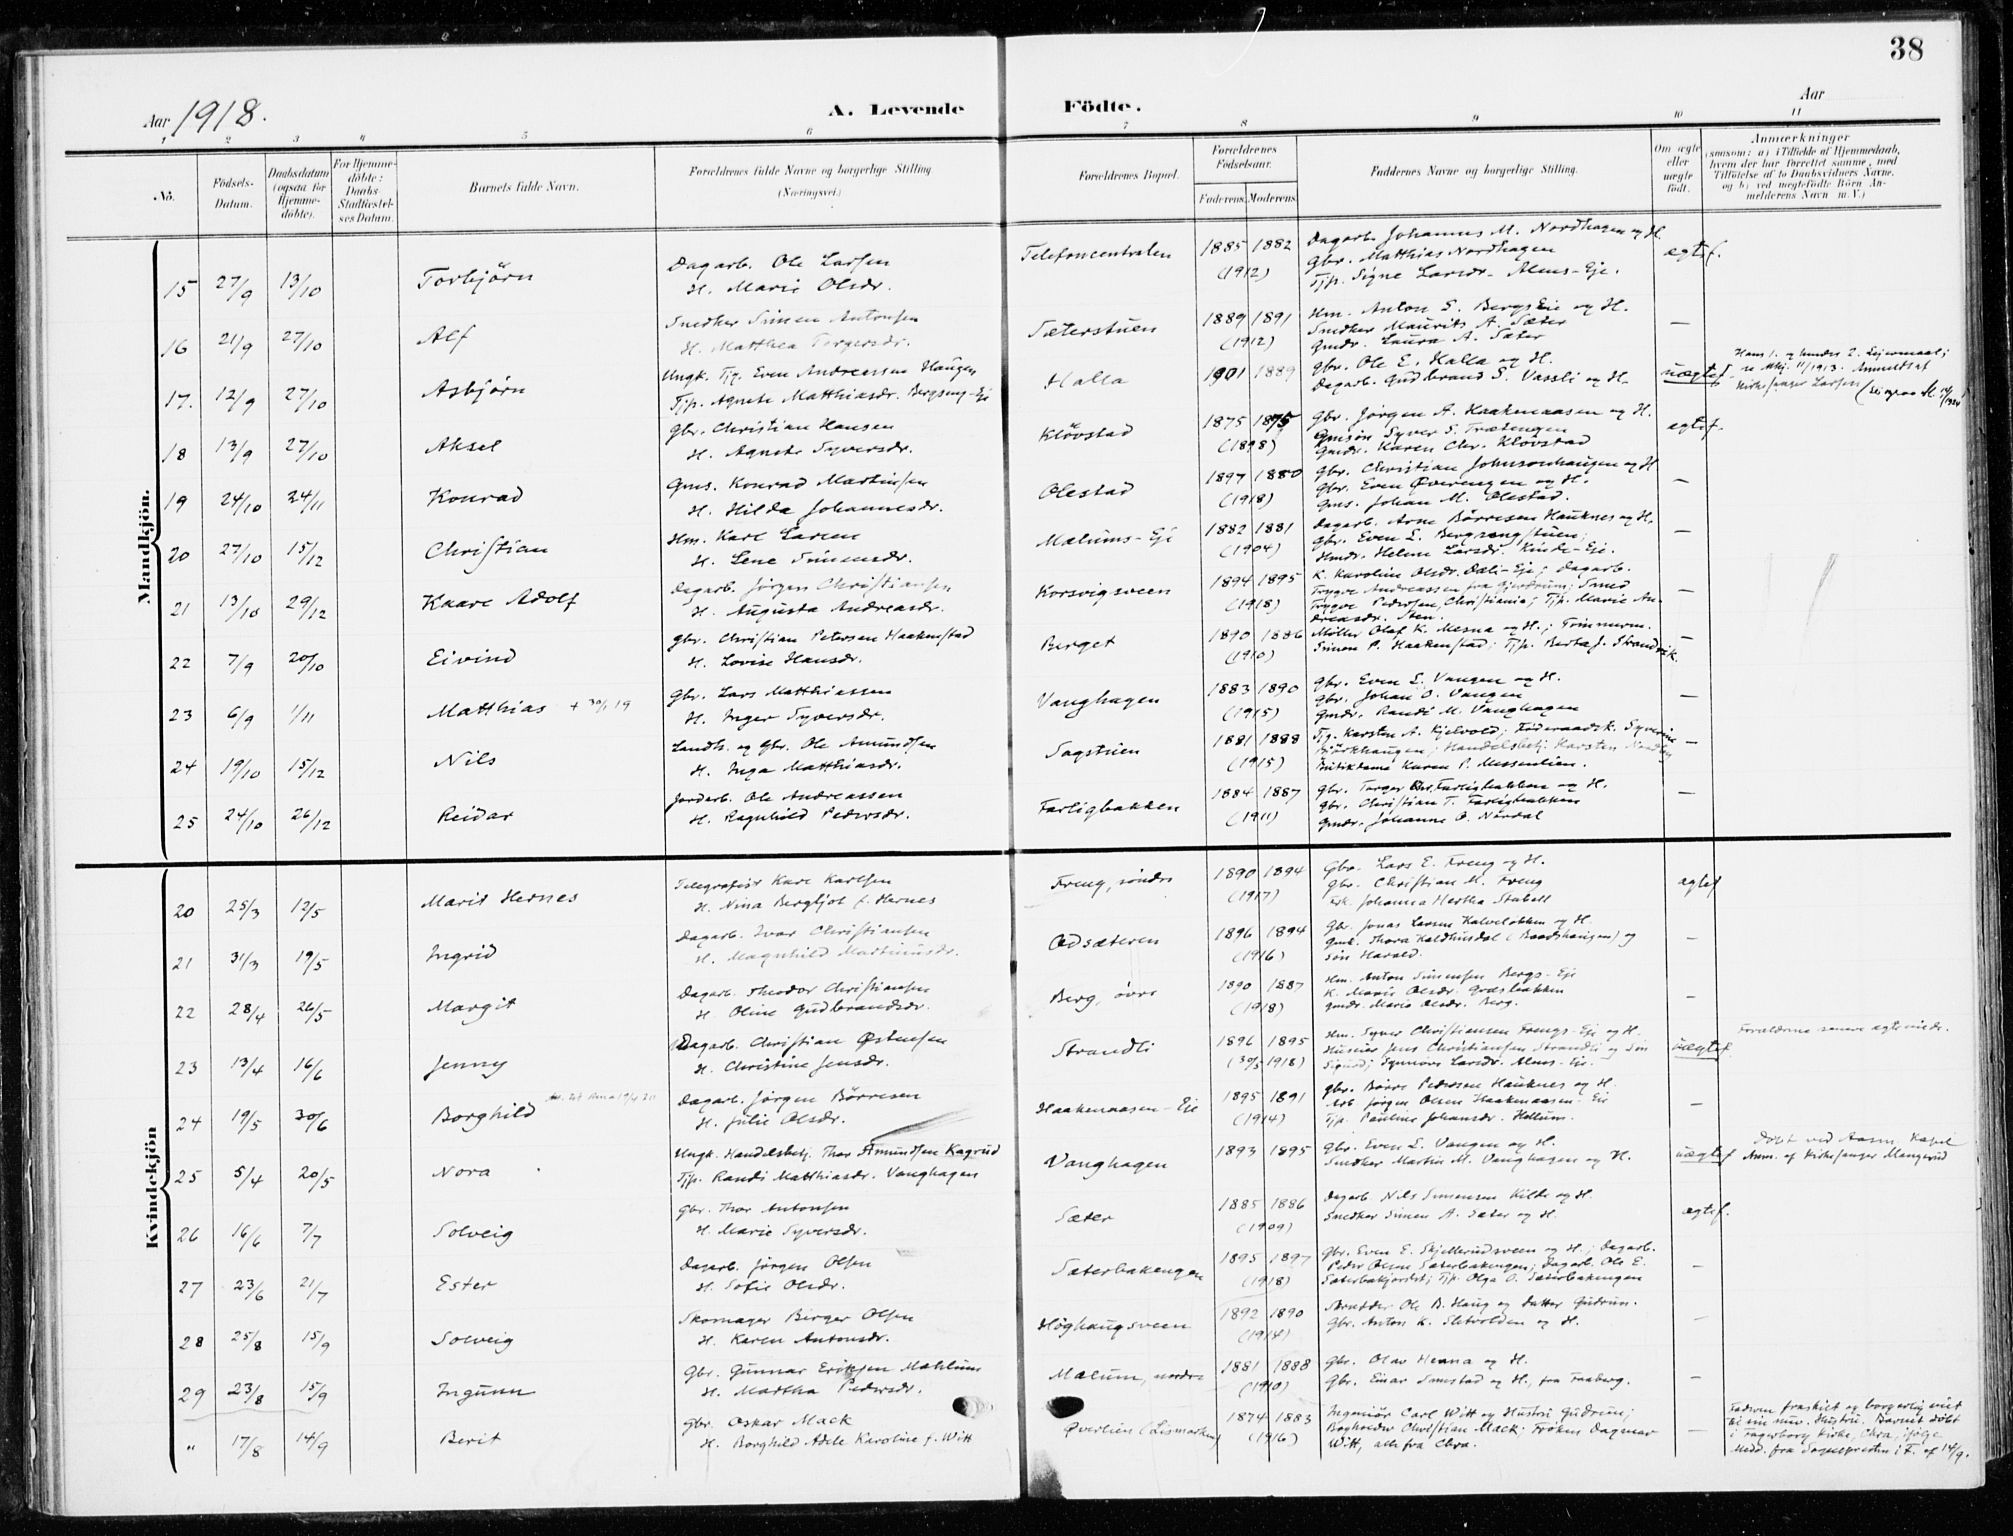 38
Aar 1918.
A. Levende Födte.
Aar
1 2 3 4 5 6 7 8 9 10 11
No.
Födsels-Datum.
Daabsdatum (ogsaa for Hjemme-döbte).
For Hjemme-döbte: Daabs-Stadfæstel-ses Datum.
Barnets fulde Navn.
Forældrenes fulde Navne og borgerlige Stilling (Næringsvei.)
Forældrenes Bopæl.
Forældrenes Födselsaar.
Faderens. Moderens.
Faddernes Navne og borgerlige Stilling.
Om ægte eller uægte födt.
Anmærkninger
(saasom: a) i Tilfælde af Hjemmedaab, hvem der har forrettet samme, med Tilföielse af to Daabsvidners Navne, og b) ved uægtefödte Börn An-melderens Navn m.V.)
Mandkjön.
15 27/9 13/10 Torbjørn
Dagarb. Ole Larsen
H. Marie Olsdr.
Telefoncentralen 1885 1882 (1912)
Dagarb. Johannes M. Nordhagen og H.
Gbr. Matthias Nordhagen
Tjp. Signe Larsdr. Alms-Eje.
ægtef.
16 21/9 27/10 Alf
Snedker Simen Antonsen
H. Matthea Torgersdr.
Sæterstuen 1889 1891 (1912)
Hm. Anton S. Bergs Eie og H.
Snedker Maurits A. Sæter
Gmdr. Laura A. Sæter
—
17. 12/9 27/10 Asbjørn
Ungk. Tjg. Even Andreassen Haugen
Tjp. Agnete Matthiasdr. Bergseng-Eje
Halla 1901 1889
Gbr. Ole E. Halla og H.
Dagarb. Gudbrand S. Vassli og H.
uægtef.
Hans 1. og hendes 2. Lejermaal;
11/1913. Anmeldt af
Kirkesanger Larsen
18 13/9 27/10 Aksel
Gbr. Christian Hansen
H. Agnete Syversdr.
Klövstad 1875 1875 (1898)
Gbr. Jörgen A. Haakenaasen og H.
Gmsøn Syver S. Trætengen
Gmdr. Karen Chr. Klövstad
ægtef.
19 24/10 24/11 Konrad
Gms. Konrad Martinsen
H. Hilda Johannesdr.
Olestad 1897 1880 (1918)
Gbr. Christian Johnsonhaugen og H
Gbr. Even Øverengen og H.
Gms. Johan M. Olestad.
—
20 27/10 15/12 Christian
Hm. Karl Larsen
H. Lene Simensdr.
Mælums-Eje 1882 1881 (1904)
Dagarb. Arne Børresen Hauknes og H.
Gbr. Even L. Bergsengstuen;
Hmdr. Helene Larsdr. Kinde-Eje.
—
21 13/10 29/12 Kaare Adolf
Dagarb. Jörgen Christiansen
H. Augusta Andreasdr.
Korsvigsveen 1894 1895 (1918)
K. Karoline Olsdr. Dæli-Eje; Dagarb.
Trygve Andreassen fra Gjerdrum; Smed
Trygve Pedersen, Christiania; Tjp. Marie An-
dreasdr. Sten.
—
22 7/9 20/10 Eivind
Gbr. Christian Petersen Haakenstad
H. Lovise Hansdr.
Berget 1890 1886 (1910)
Møller Olaf K. Mesna og H.; Tömmerm.
Simen P. Haakenstad; Tjp. Berta J. Strandvik.
—
23 6/9 1/11 Matthias + 30/1 19
Gbr. Lars Matthiassen
H. Inger Syversdr.
Vanghagen 1883 1890 (1915)
Gbr. Even L. Vangen og H.
Gbr. Johan O. Vangen
Gmdr. Randi M. Vanghagen
—
24 19/10 15/12 Nils
Landh. og Gbr. Ole Amundsen
H. Inga Matthiasdr.
Sagstuen 1881 1888 (1915)
Tjg. Karsten A. Kjelvold; Föderaadsk. Syverine
Björkhaugen; Handelsbetj. Karsten Nordby
Butikdame Karen P. Messenlien.
—
25 24/10 26/12 Reidar
Jordarb. Ole Andreassen
H. Ragnhild Pedersdr.
Farligbakken 1884 1887 (1911)
Gbr. Torger Chr. Farligbakken og H.
Gbr. Christian T. Farligbakken
Gmdr. Johanne O. Nordal
—
Kvindekjön
20 25/3 12/5 Marit Hernes
Telegrafist Kare Karlsen
H. Nina Bergljot f. Hernes
Freng, söndre 1890 1894 (1917)
Gbr. Lars E. Freng og H.
Gbr. Christian M. Freng
Frk. Johanna Hertha Stabell
ægtef
21 31/3 19/5 Ingrid
Dagarb. Ivar Christiansen
H. Magnhild Martinusdr.
Odsæteren 1896 1894 (1916)
Gbr. Jonas Larsen Kalveløkken og H.
Gmk. Thora Kaldhusdal (Baadshaugen) og
Søn Harald.
—
22 28/4 26/5 Margit
Dagarb. Theodor Christiansen
H. Oline Gudbrandsdr.
Berg, övre 1890 1887 (1918)
Hm. Anton Simensen Bergs-Eje
K. Marie Olsdr. Godsbakken
Gmdr. Marie Olsdr. Berg.
—
23 13/4 16/6 Jenny
Dagarb. Christian Østensen
H. Christine Jensdr.
Strandli 1896 1895 (30/5 1918)
Hm. Syver Christiansen Frengs-Eje og H.
Husmd Jens Christiansen Strandli og Søn
Sigurd; Synnöve Larsdr. Alms-Eje.
uægtef.
Forældrene senere ægteviede.
24 19/5 30/6 Borghild
Dagarb. Jörgen Börresen
H. Julie Olsdr.
Haakenaasen-Eje 1895 1891 (1914)
Gbr. Börre Pedersen Hauknes og H.
Arb. Jörgen Olsen Haakenaasen-Eie
Tjp. Pauline Johansdr. Hellum.
—
25 5/4 20/5 Nora
Ungk. Handelsbetj. Thor Amundsen Kagrud
Tjp. Randi Matthiasdr. Vanghagen
Vanghagen 1893 1895
Gbr. Even L. Vangen og H.
Snedker Martin M. Vanghagen og H.
uægtef
Döpt ved Aasm. Kapel
Anm. af Kirkesanger Mangerud
26 16/6 7/7 Solveig
Gbr. Thor Antonsen
H. Marie Syversdr.
Sæter 1885 1886 (1909)
Dagarb Nils Simensen Kilde og H.
Snedker Simen A. Sæter og H.
ægtef.
27 23/6 21/7 Ester
Dagarb. Jörgen Olsen
H. Sofie Olsdr.
Sæterbakengen 1895 1897 (1918)
Gbr. Even E. Skjellerudsveen og H.; Dagarb.
Peder Olsen Sæterbakengen; Dagarb. Ole E.
Sæterbakjordet; Tjp. Olga O. Sæterbakengen
—
28 25/8 15/9 Solveig
Skomager Berger Olsen
H. Karen Antonsdr.
Høghaugsveen 1892 1890 (1914)
Skrædder Ole B. Haug og datter Gudrun.
Gbr. Anton K. Sletvolden og H.
—
29 23/8 15/9 Ingunn
Gbr. Gunnar Eriksen Mæhlum
H. Martha Pedersdr.
Mælum, nordre 1881 1888 (1910)
Gbr. Olav Henna og H.
Gbr. Einar Samstad og H., fra Faaberg.
—
" 17/8 14/9 Berit
Gbr. Oskar Mack
H. Borghild Adele Karoline f. Witt
Øverlien (Lismarken) 1874 1883 (1916)
Ingeniör Carl Witt og Hustru Gudrun;
Bogholder Christian Mack; Fröken Dagmar
Witt, alle fra Chra.
—
Faderen fraskilt og borgerlig viet
til sin nuv. Hustru. Barnet döbt
i Fagerborg Kirke, Chra, ifølge
Medd. fra Sognepresten i F. af 14/9.